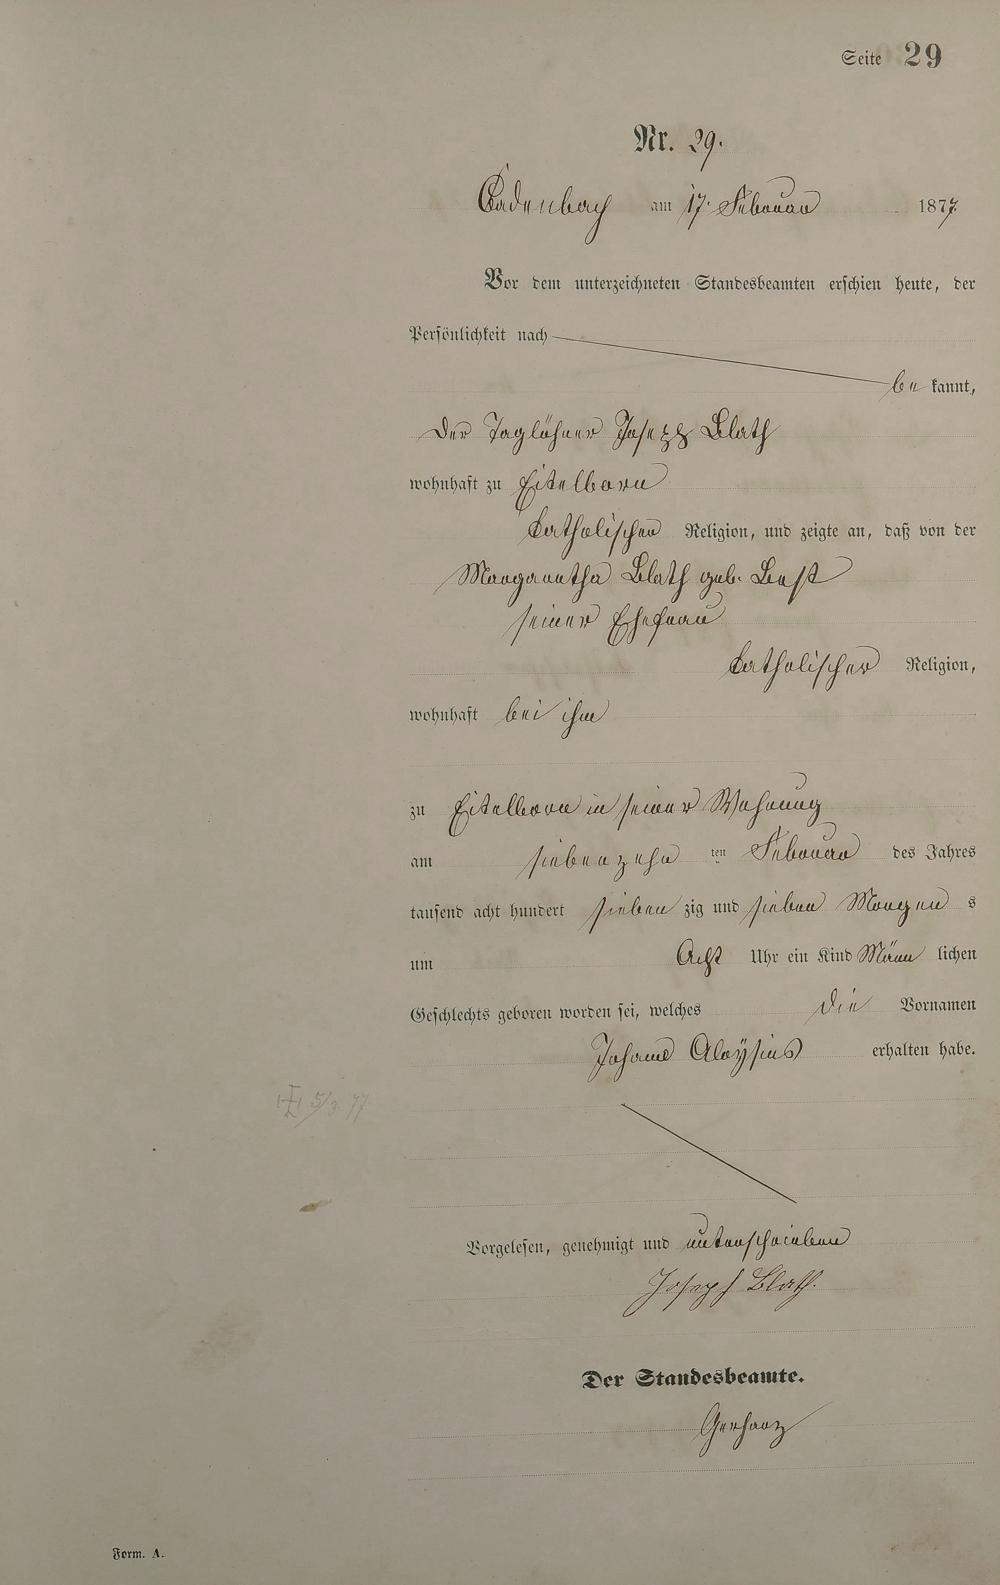 Seite 29
Nr. 29.
Cadenbach am 17. Februar 1877
Vor dem unterzeichneten Standesbeamten erschien heute, der
Persönlichkeit nach
be kannt,
der Taglöhner Joseph Blath
wohnhaft zu Eitelborn
katholischer Religion, und zeigte an, daß von der
Margaretha Blath geb. Best
seiner Ehefrau
katholischer Religion,
wohnhaft bei ihm
zu Eitelborn in seiner Wohnung
am siebenzehn ten Februar des Jahres
tausend acht hundert sieben zig und sieben Morgen s
um Acht Uhr ein Kind Männ lichen
Geschlechts geboren worden sei, welches die Vornamen
Johann Aloÿsius erhalten habe.
5/3 77
Vorgelesen, genehmigt und unterschrieben
Joseph Blath.
Der Standesbeamte.
Gerharz
Form. A.